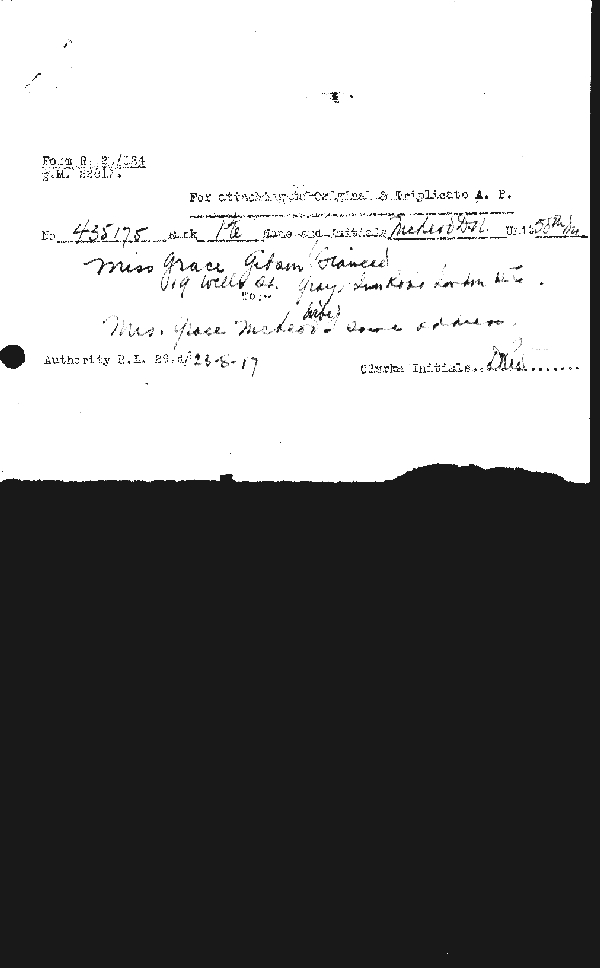 Form R. 2./134
For attaching to Original & Triplicate A. P.
No 435175 Rank Pte Name and Initials McLeod D.H. Unit 50th
Miss Grace Gibson (fiancee)
19 Wells St. Grays Inn Road London
To:-
(wife)
Mrs. Grace McLeod - same address.
Authority R.L. 23.d/23-8-17
Clerks Initials..